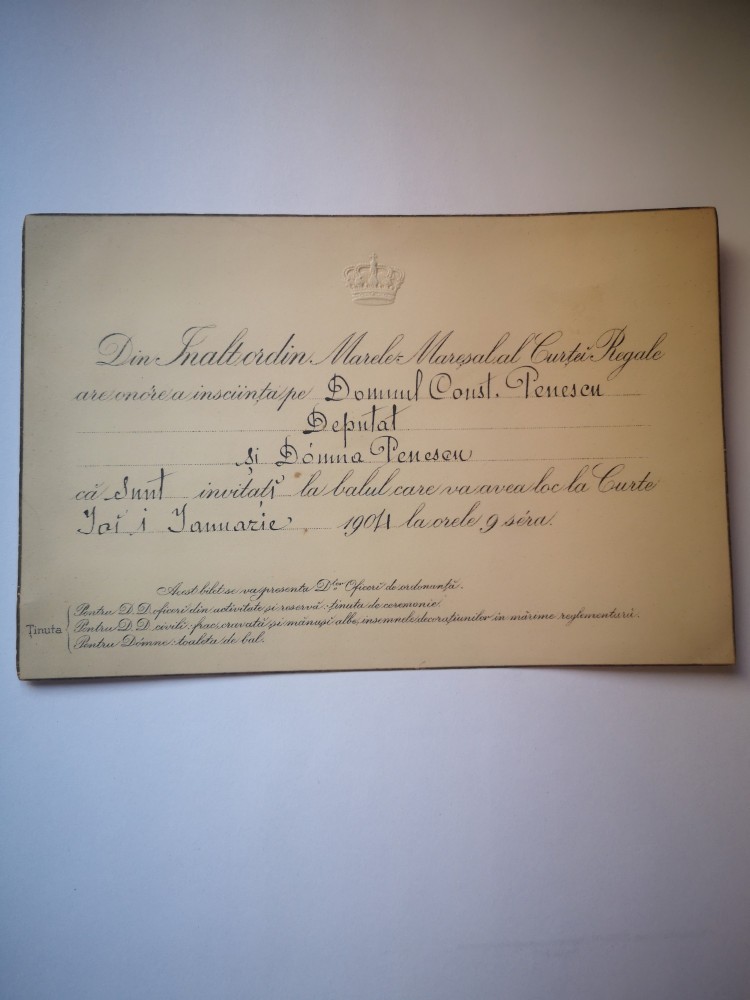 Din Inalt ordin Marele Mareșal al Curței Regale
are onóre a insciința pe Domnul Const. Penescu
Deputat
și Dómna Penescu
că sunt invitați la balul care va avea loc la Curte
Joi 1 Ianuarie 1904 la orele 9 séra.
Acest bilet se va presenta D-lor Oficeri de ordonanță.
Ținuta
Pentru D.D. oficeri din activitate și reservă: ținuta de ceremonie.
Pentru D.D. civili: frac, cravată și mănuși albe, insemnele decorațiunilor in mărеme reglementară.
Pentru Dómne: toaleta de bal.